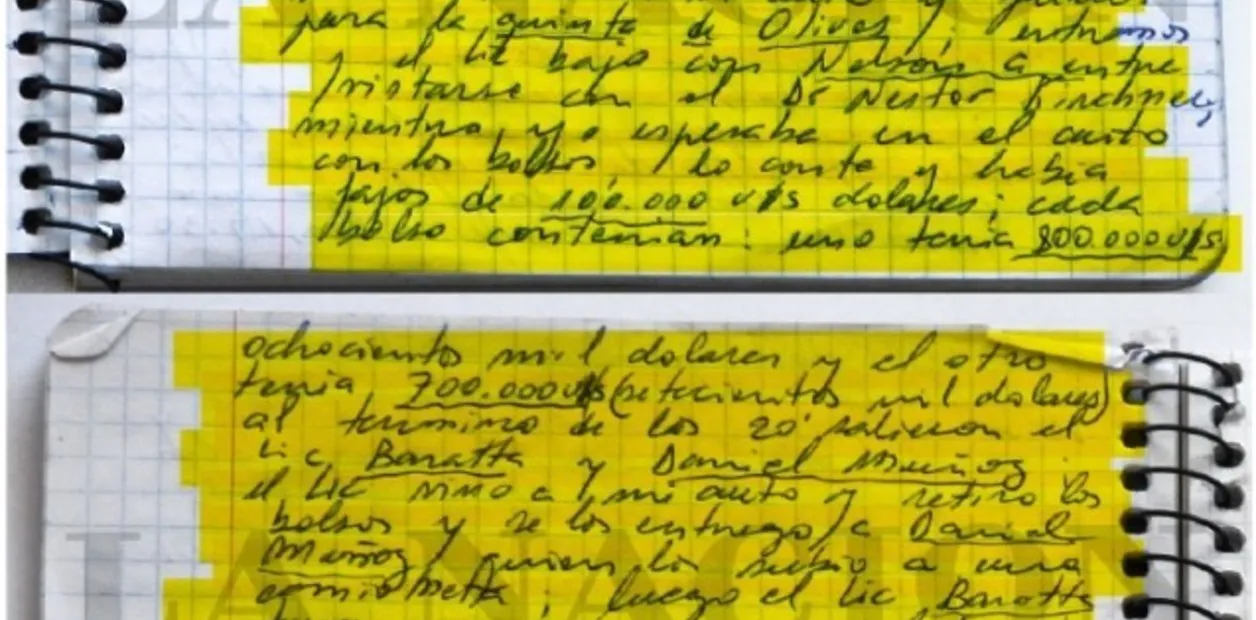 para la quinta de Olivos; entramos
el lic bajo com Nelson a entre
vistarse con el Dr Nestor Kirchner,
mientras yo esperaba en el auto
con los bolsos, lo conte y habia
fajos de 100.000 u$s dolares; cada
bolso contenian: uno tenia 800.000 u$s
ochocientos mil dolares y el otro
tenia 700.000 u$s (setecientos mil dolares)
al termino de los 20' salieron el
Lic Baratta y Daniel Muñoz
el Lic vino a mi auto y retiro los
bolsos y se los entrego a Daniel
Muñoz quien los subio a una
camioneta; luego el Lic Baratta
LA NACION